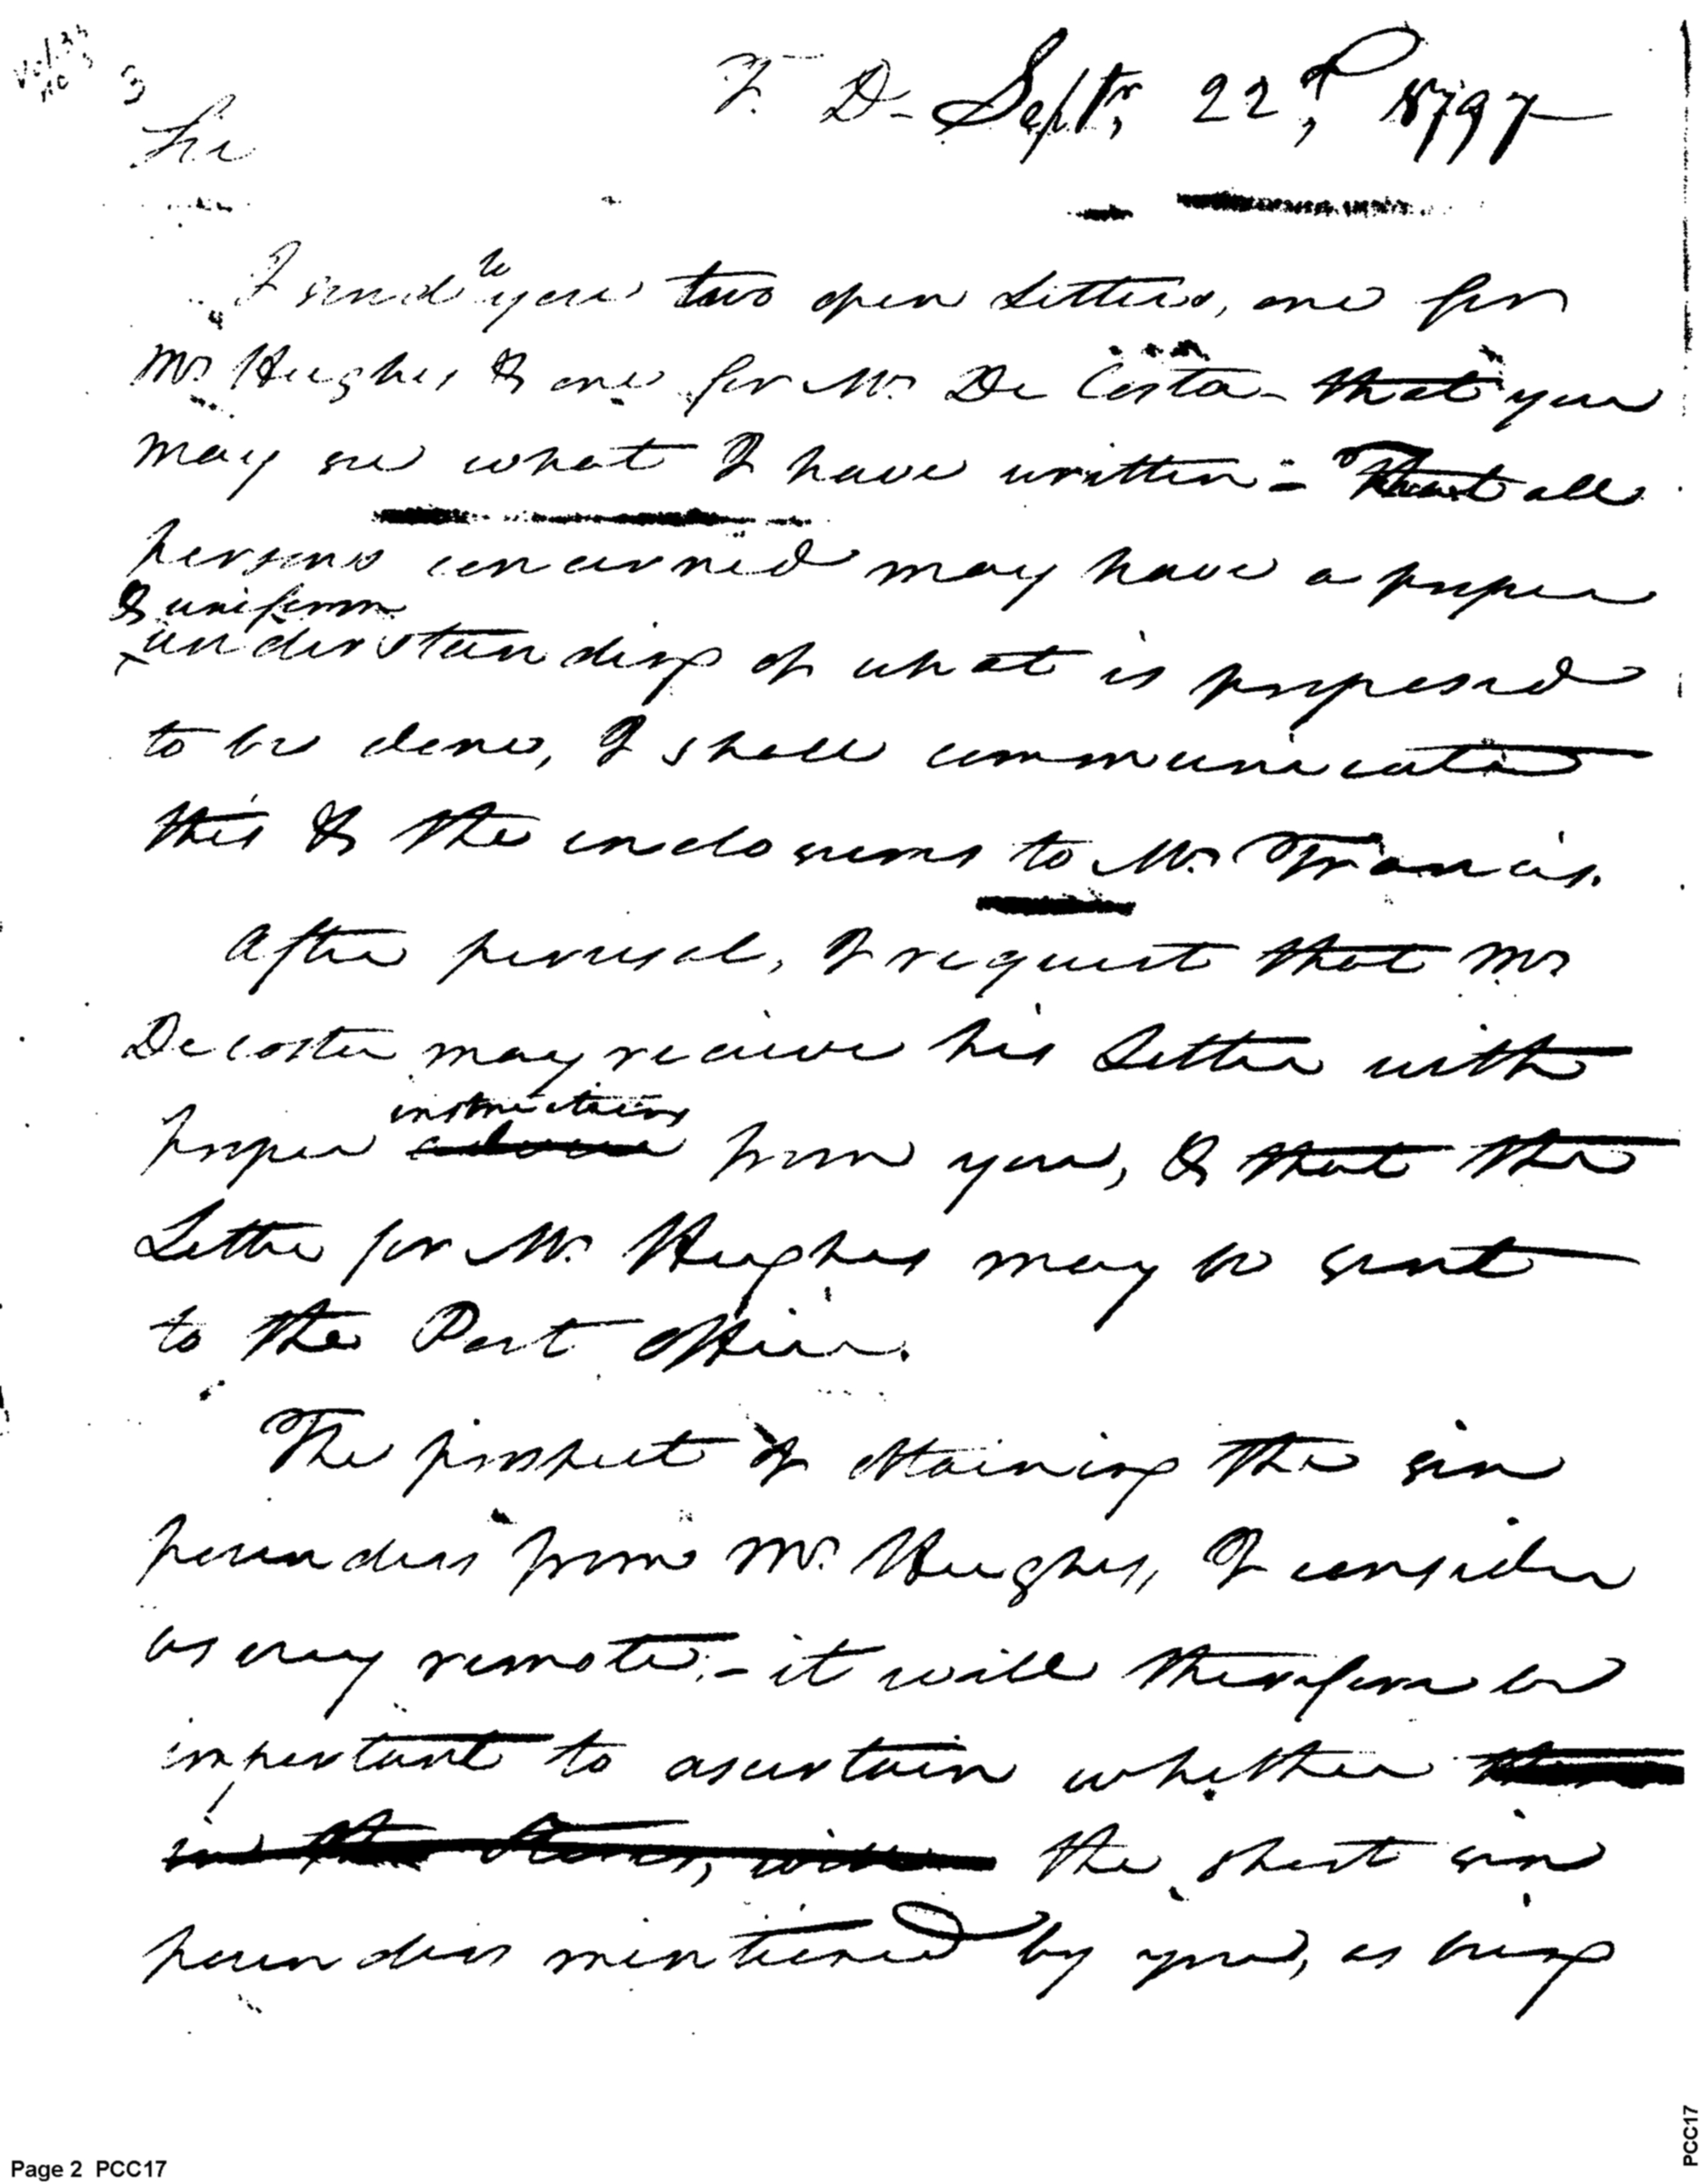 3
T. D- Septr, 22d, 1797
Sir
I send to you two open Letters, one for
Mr Hughes & one for Mr. De Costa - that you
may see what I have written = That all
persons concerned may have a proper
& uniform
understanding of what is proposed
to be done, I shall communicate
this & the inclosures to Mr. Francis.
After perusal, I request that Mr
Decosta may recieve his Letter with
instructions
proper from you, & that the
Letter for Mr. Hughes may be sent
to the Post Office.
The prospect of obtaining the sus
penders from Mr. Hughes, I consider
as very remote, - it will therefore be
important to ascertain whether
in the the short
mentioned by you, as being
Page 2 PCC17
PCC17